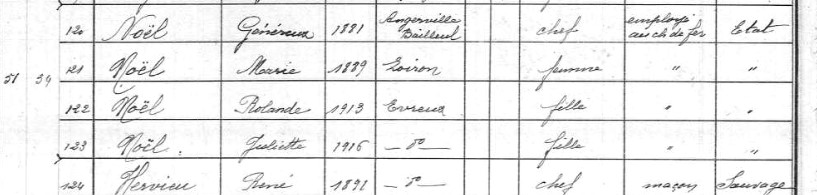 120 Noël Généreux 1881 Angerville Bailleul chef employé aux ch de fer Etat
121 Noël Marie 1889 Loiron femme " "
51 34 122 Noël Rolande 1913 Evreux fille " "
123 Noël Juliette 1916 - do - fille " "
124 Hervieu René 1891 - do - chef maçon Sauvage